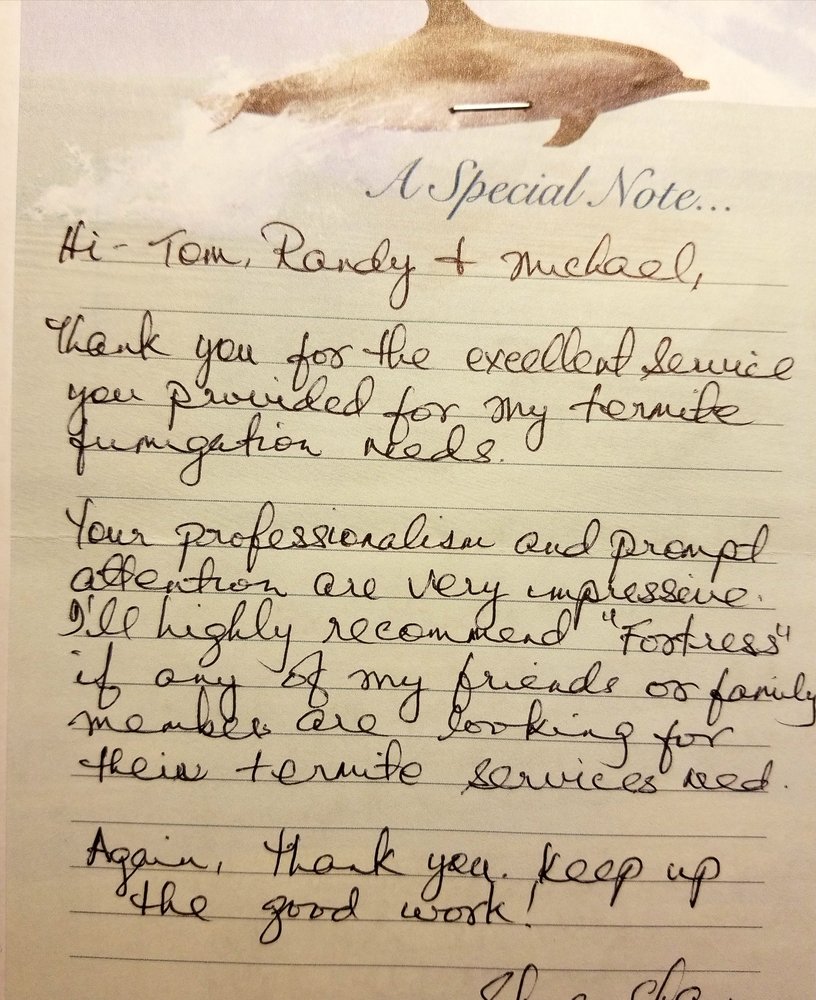 A Special Note...
Hi - Tom, Randy + Michael,
Thank you for the excellent service
you provided for my termite
fumigation needs.
Your professionalism and prompt
attention are very impressive.
I'll highly recommend "Fortress"
if any of my friends or family
members are looking for
their termite services need.
Again, thank you. Keep up
the good work!